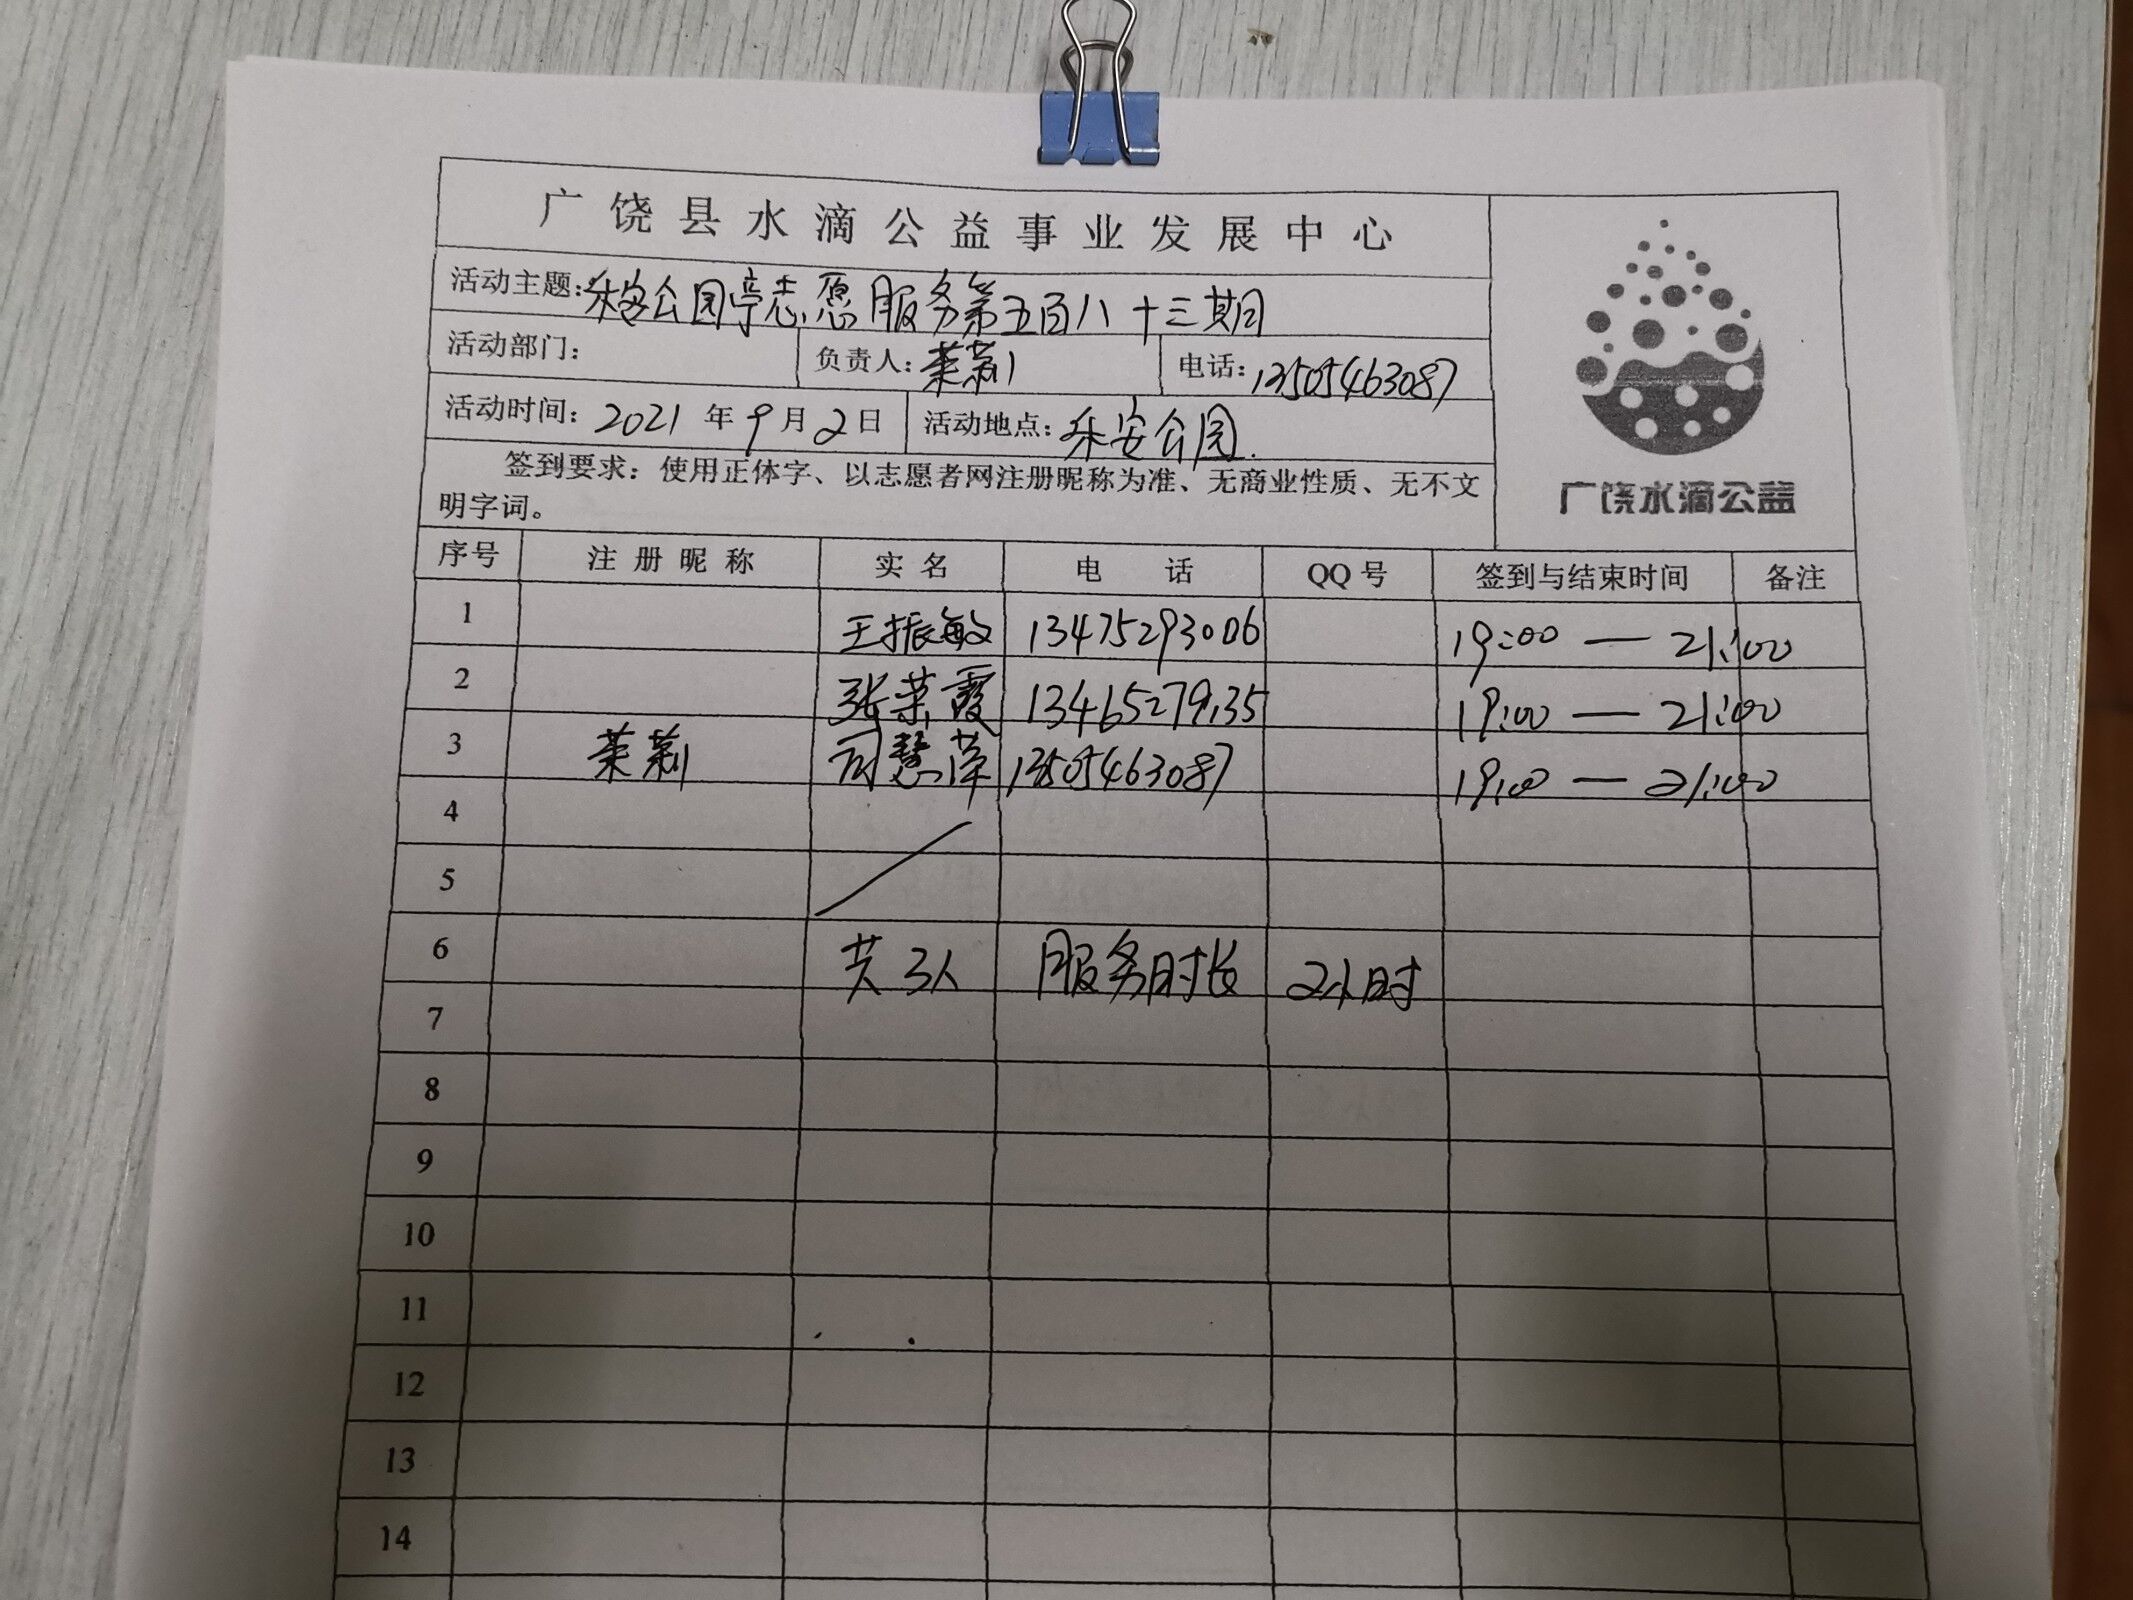 广饶县水滴公益事业发展中心
活动主题:乐安公园亭志愿服务第五百八十三期
活动部门: 负责人:茉莉 电话:13505463087
活动时间:2021年9月2日 活动地点:乐安公园.
签到要求:使用正体字、以志愿者网注册昵称为准、无商业性质、无不文
明字词。
广饶水滴公益
序号 注册昵称 实名 电 话 QQ号 签到与结束时间 备注
1 王振敏 13475293006 19:00 — 21:00
2 张荣霞 13465279135 19:00 — 21:00
3 茉莉 司慧萍 13505463087 19:00 — 21:00
4
5
6 共3人 服务时长 2小时
7
8
9
10
11
12
13
14